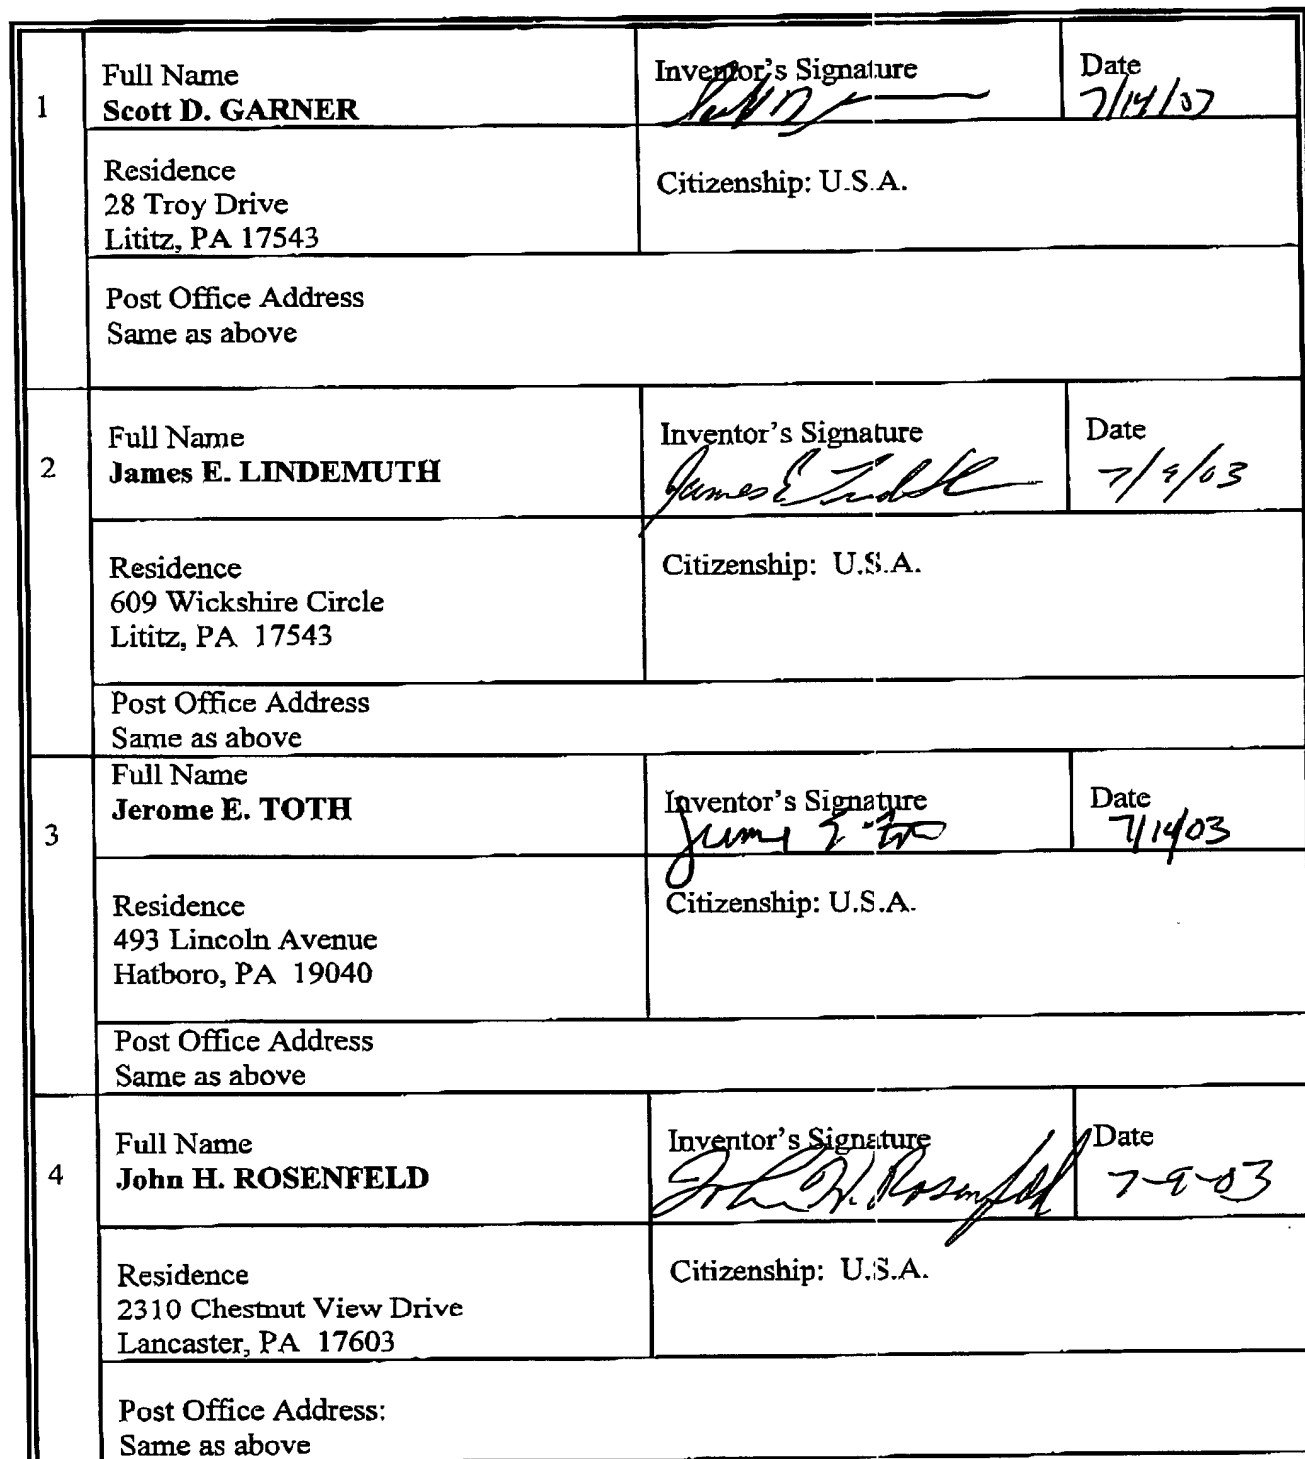 1
Full Name
Scott D. GARNER
Inventor's Signature
Date
7/14/03
Residence
28 Troy Drive
Lititz, PA 17543
Citizenship: U.S.A.
Post Office Address
Same as above
2
Full Name
James E. LINDEMUTH
Inventor's Signature
James E
Date
7/9/03
Residence
609 Wickshire Circle
Lititz, PA 17543
Citizenship: U.S.A.
Post Office Address
Same as above
3
Full Name
Jerome E. TOTH
Inventor's Signature
Date
7/14/03
Residence
493 Lincoln Avenue
Hatboro, PA 19040
Citizenship: U.S.A.
Post Office Address
Same as above
4
Full Name
John H. ROSENFELD
Inventor's Signature
John H. Rosenfeld
Date
7-9-03
Residence
2310 Chestnut View Drive
Lancaster, PA 17603
Citizenship: U.S.A.
Post Office Address:
Same as above